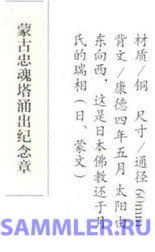 材质/铜 尺寸/通径60mm
背文/康德四年五月 太阳由
东向西，这是日本佛教还于
氏的瑞相（日、蒙文）
蒙古忠魂塔涌出纪念章
SAMMLER.RU